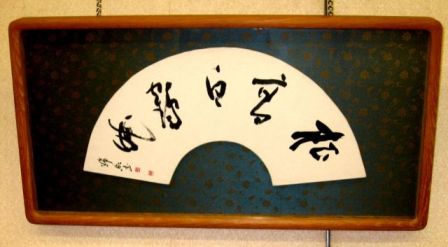 松高白鶴眠